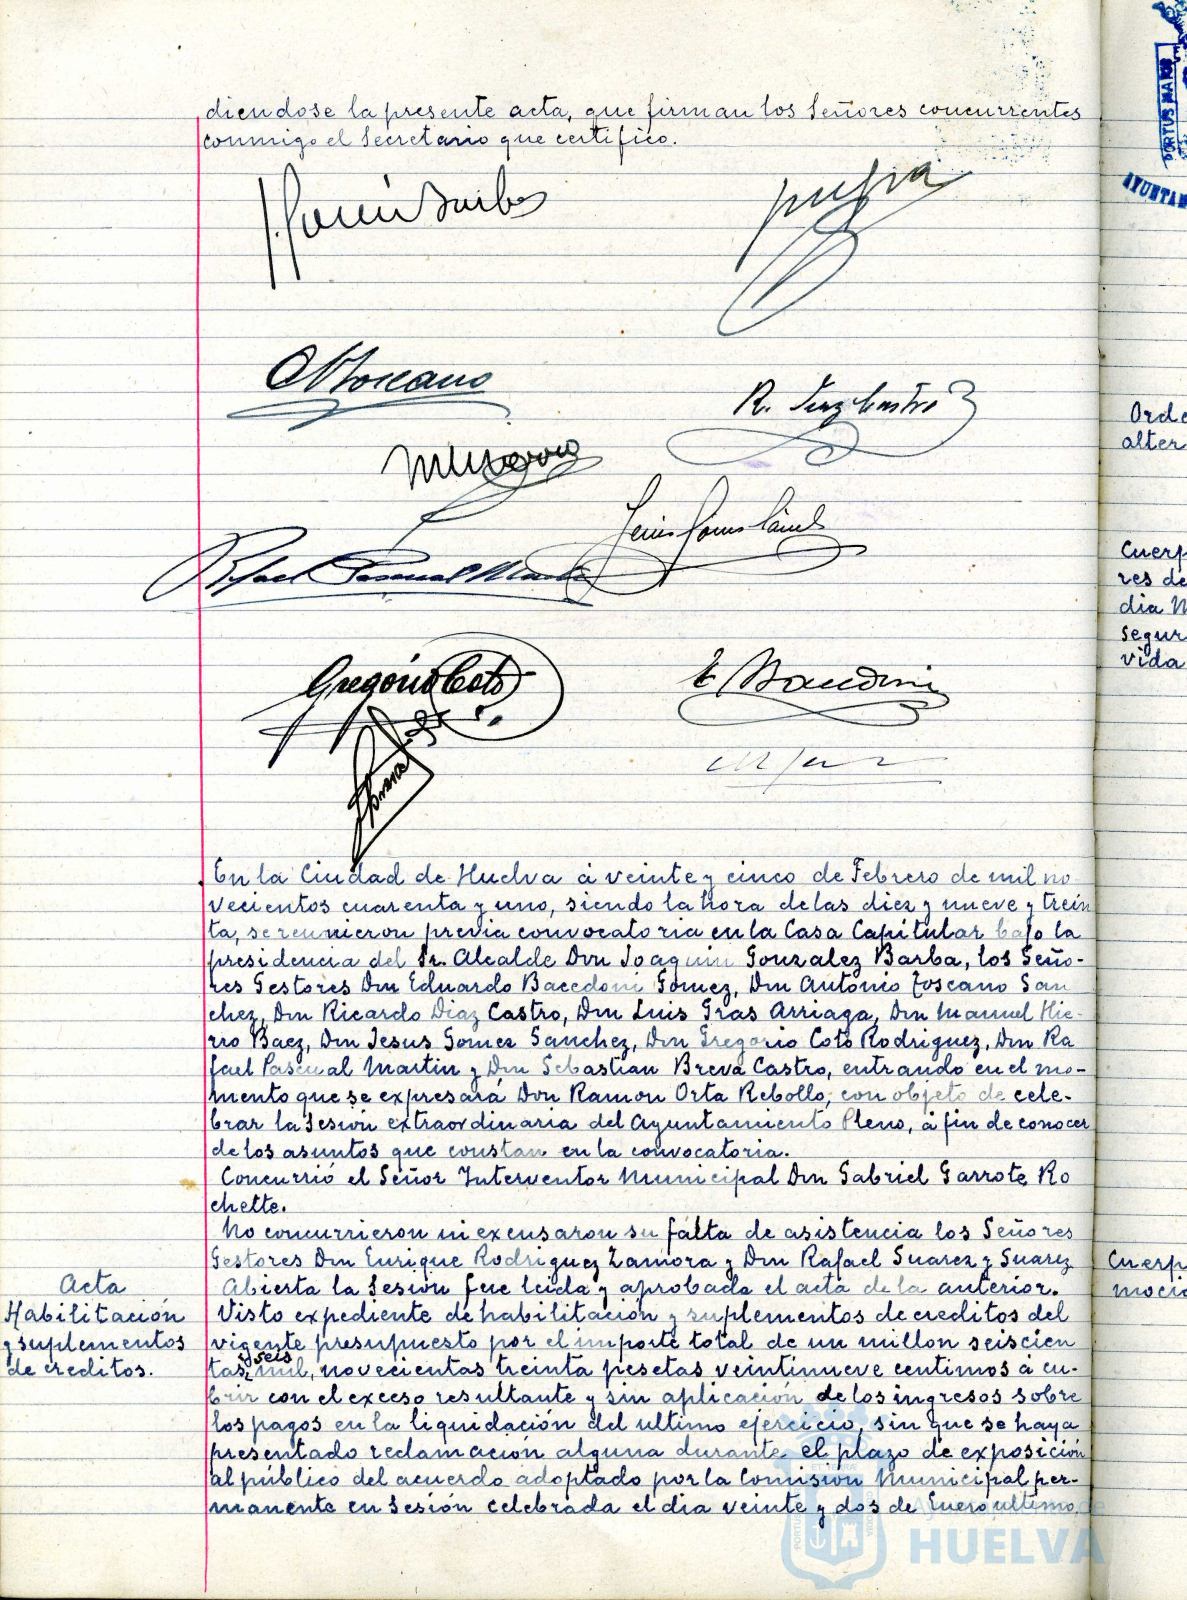 diendose la presente acta, que firman los Señores concurrentes
conmigo el Secretario que certifico.
R. Diaz Castro
Rafael Pascual Martin
Gregorio Coto
En la Ciudad de Huelva á veinte y cinco de Febrero de mil no-
vecientos cuarenta y uno, siendo la hora de las diez y nueve y trein
ta, se reunieron previa convocatoria en la Casa Capitular bajo la
presidencia del Sr. Alcalde Don Joaquin Gonzalez Barba, los Seño-
res Gestores Don Eduardo Bacedoni Gomez, Don Antonio Toscano San
chez, Don Ricardo Diaz Castro, Don Luis Gras Arriaga, Don Manuel Hie-
rro Baez, Don Jesus Gomez Sanchez, Don Gregorio Coto Rodriguez, Don Ra
fael Pascual Martin y Don Sebastian Breva Castro, entrando en el mo-
mento que se expresará Don Ramon Orta Rebollo, con objeto de cele-
brar la Sesion extraordinaria del Ayuntamiento Pleno, á fin de conocer
de los asuntos que constan en la convocatoria.
Concurrió el Señor Interventor Municipal Don Gabriel Garrote Ro
chette.
No concurrieron ni excusaron su falta de asistencia los Señores
Gestores Don Enrique Rodriguez Zamora y Don Rafael Suarez y Suarez
Acta
Abierta la Sesion fue leida y aprobada el acta de la anterior.
Habilitación
y suplementos
de creditos.
Visto expediente de habilitación y suplementos de creditos del
vigente presupuesto por el importe total de un millon seiscien
y seis
tas mil, novecientas treinta pesetas veintinueve centimos á cu-
brir con el exceso resultante y sin aplicación de los ingresos sobre
los pagos en la liquidación del ultimo ejercicio, sin que se haya
presentado reclamación alguna durante el plazo de exposición
al público del acuerdo adoptado por la Comision Municipal per-
manente en Sesión celebrada el dia veinte y dos de Enero ultimo,
PORTUS MARIS
AYUNTAM
Orde
alter
Cuerp
res de
dia M
segur
vida
Cuerp
moció
Ayuntamiento de
HUELVA